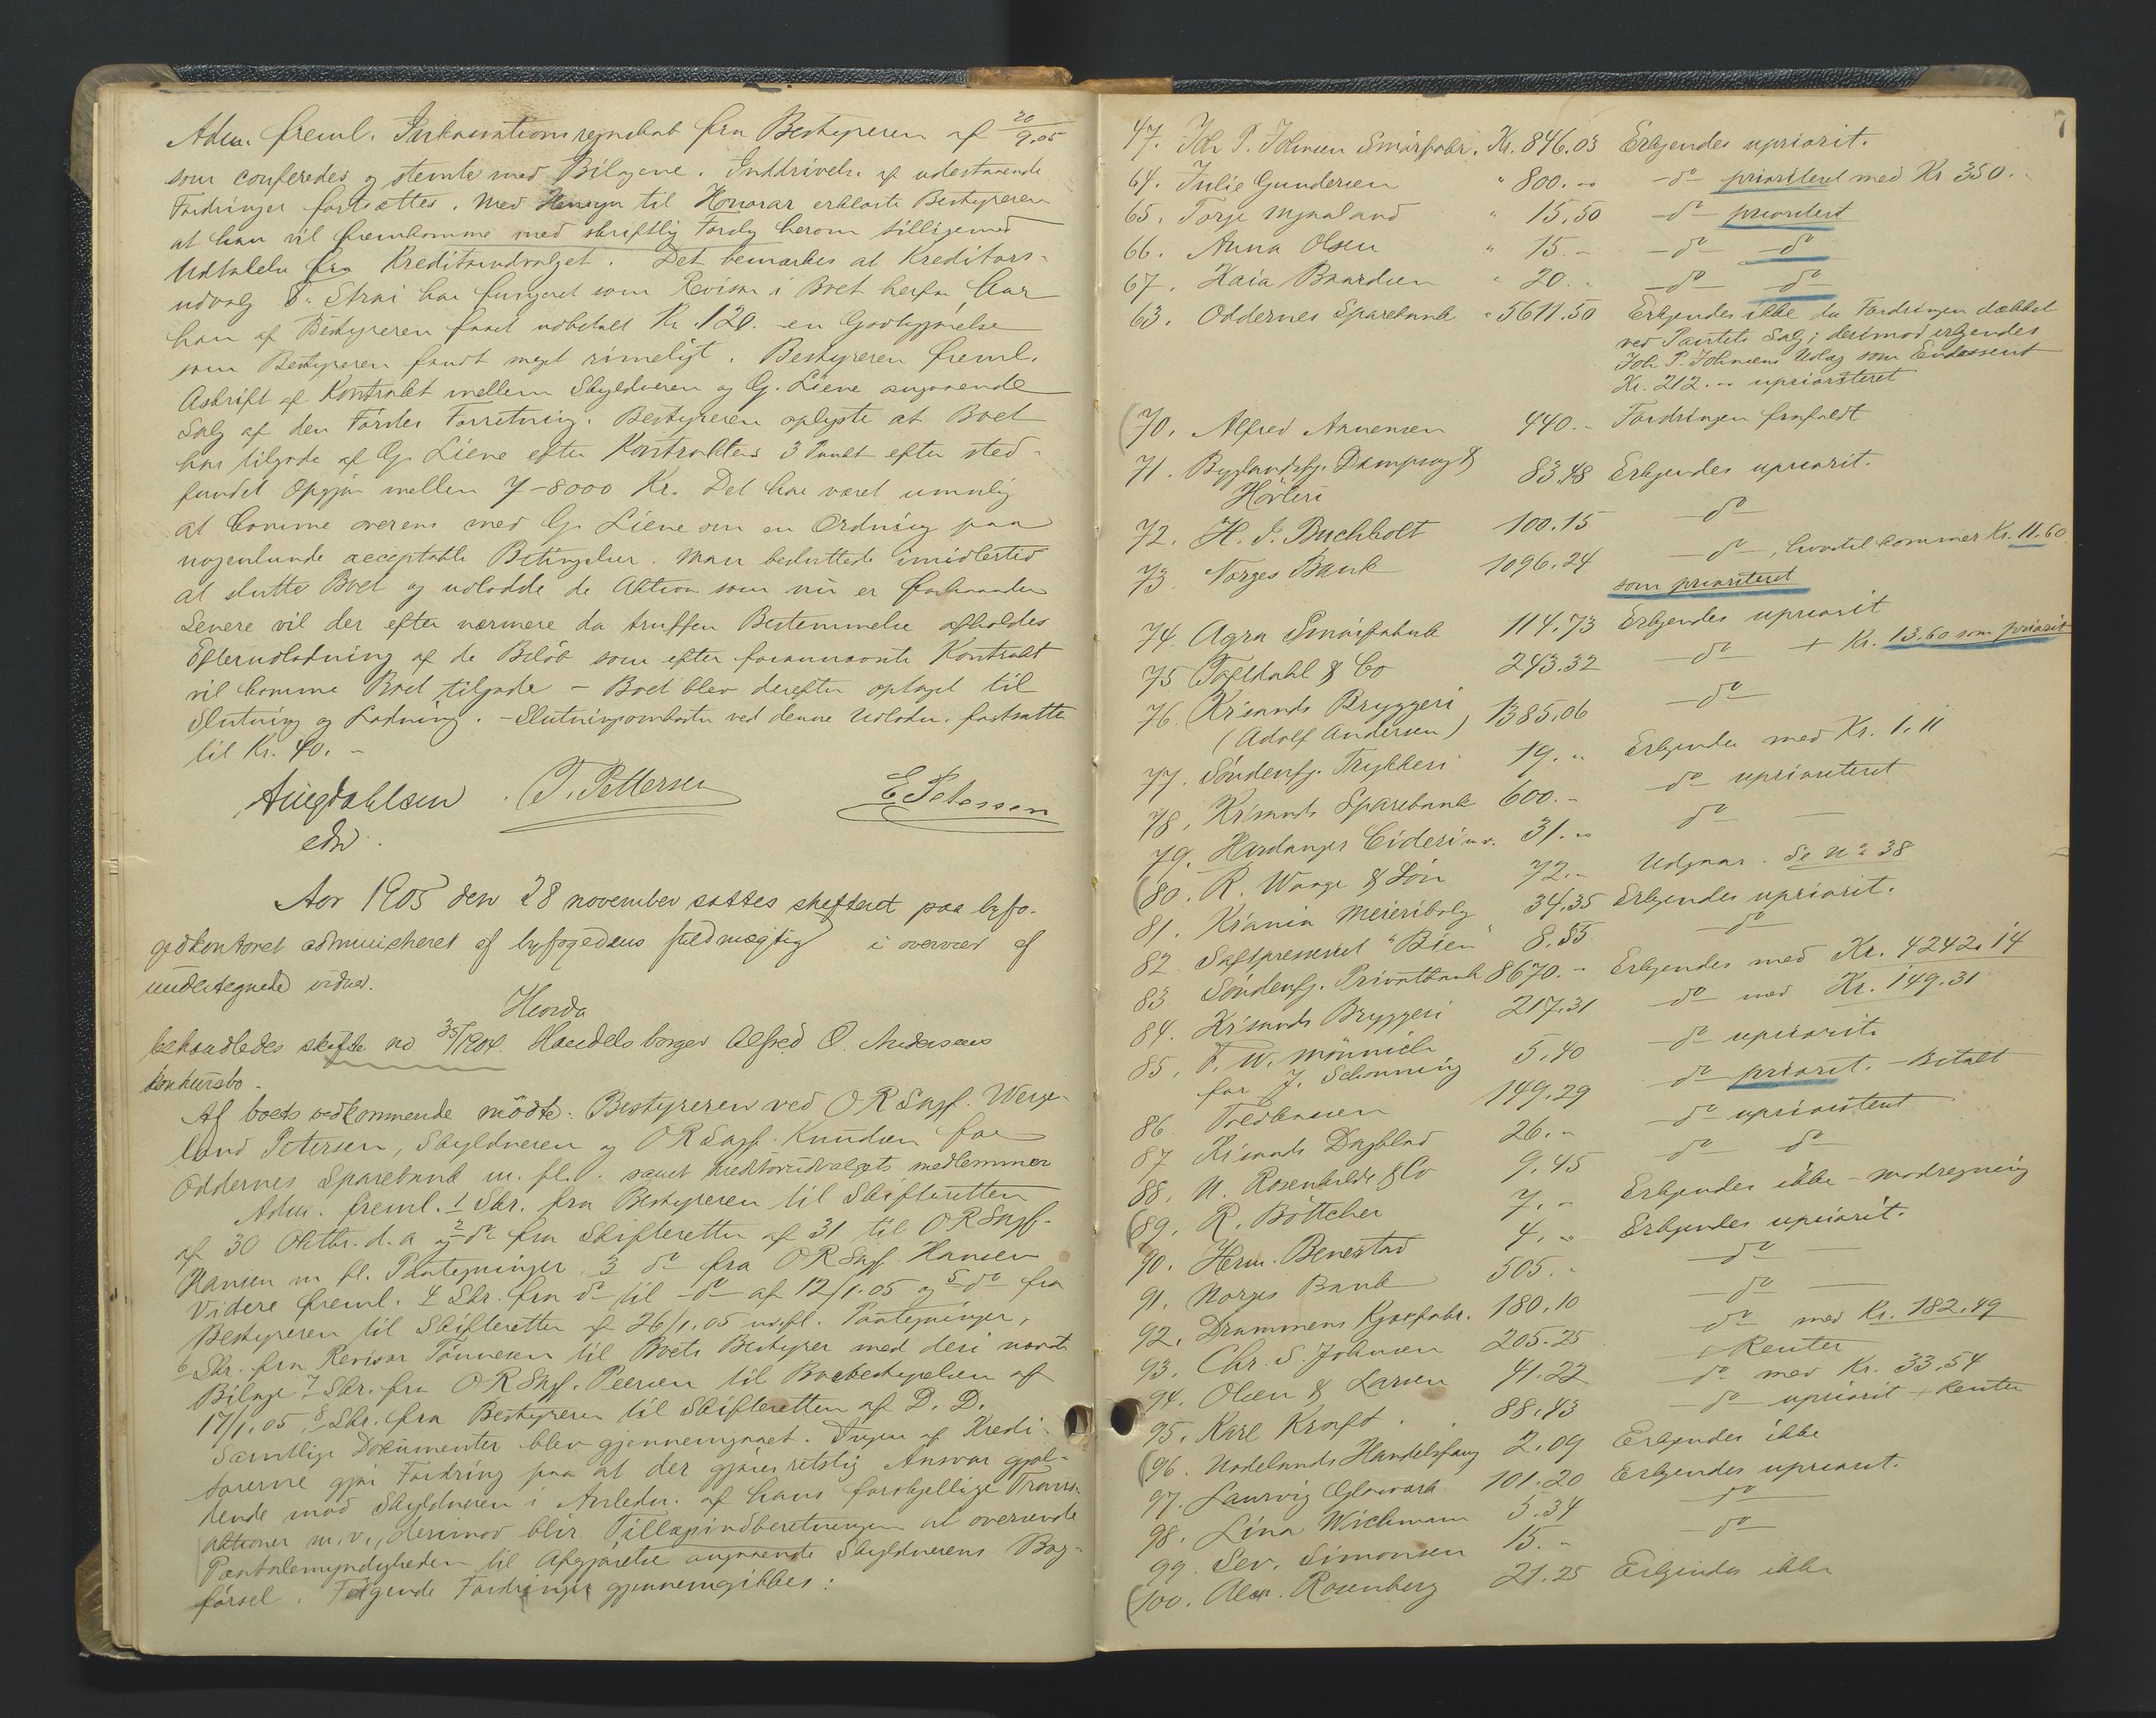 Adm. freml. Inkassationsregnskab fra Bestyreren af 20/9.05
som conferedes og stemte med Bilagene. Inddrivelse af udestaaende
Fordringer fortsættes. Med Hensyn til Honorar erklærte Bestyreren
at han vil fremkomme med skriftlig Fordg herom tilligemed
Udtalelse fra Kreditorudvalget. Det bemærkes at Kreditors-
udvalg T. Strai har fungeret som Revisor i Boet herfor har
han af Bestyreren faaet udbetalt Kr. 120. en Godtgjørelse
som Bestyreren fandt meget rimeligt. Bestyreren freml.
Afskrift af Kontrakt mellem Skyldneren og G. Liene angaaende
Salg af den Førstes Forretning. Bestyreren oplyste at Boet
har tilgode af G. Liene efter Kontraktens 3 Punkt efter sted-
fundet Opgjør mellem 7-8000 Kr. Det har været umulig
at komme overens med G. Liene om en Ordning paa
nogenlunde acceptable Betingelser. Man besluttede imidlertid
at slutte Boet og udlodde de Aktiva som nu er forhaanden
Senere vil der efter nærmere da truffen Bestemmelse afholdes
Efterudlodning af de Beløb som efter forannævnte Kontrakt
vil komme Boet tilgode - Boet blev derefter optaget til
Slutning og Lodning. - Slutningsomkostn ved denne Udlodn. fastsattes
til Kr. 40. -
Aug Dahlsen T. Pettersen E. Petersen
edv.
Aar 1905 den 28 november sattes skifteret paa byfo-
gedkontoret administreret af byfogedens fuldmægtig i overvær af
undertegnede vidner.
Hvorda
behandledes skifte no 35/1904. Handelsborger Alfred O. Andersens
konkursbo.
Af boets vedkommende mødte: Bestyreren ved O R Sagf. Werge-
land Petersen, Skyldneren og O R Sagf. Knudsen for
Oddernes Sparebank m. fl. samt kreditorudvalgets medlemmer
Adm. freml. 1 Skr. fra Bestyreren til Skifteretten
af 30 Oktbr. d. a og 2 do fra Skifteretten af 31 til O R Sagf.
Hansen m fl. Paategninger, 3 do fra O R Sagf. Hansen
Videre freml. 4 Skr. fra do til do af 12/1.05 og 5 do fra
Bestyreren til Skifteretten af 26/1.05 m. fl. Paategninger,
6 Skr. fra Revisor Tønnesen til Boets Bestyrer med deri nævnte
Bilage 7 Skr. fra O R Sagf. Peersen til Bobestyrelsen af
17/1.05, 8 Skr. fra Bestyreren til Skifteretten af D. D.
Samtlige Dokumenter blev gjennemgaaet. Ingen af Kredi-
torerne gjør Fordring paa at der gjøres retslig Ansvar gjæl-
dende mod Skyldneren i Anledn. af hans forskjellige Trans-
aktioner m. v., derimod blir Tillægsindberetningen at oversende
Paatalemyndigheden til Afgjørelse angaaende Skyldnerens Bog-
førsel. Følgende Fordringer gjennemgikkes:
7
47. Joh P. Johnsen Smørfabr. Kr. 846.03 Erkjendes upriorit.
64. Julie Gundersen " 800.- -do- prioriteret med Kr 350.-
65. Torje Mjaaland " 15.50 -do- prioriteret
66. Anna Olsen " 15.- -do- -do-
67. Kaia Baardsen " 20.- -do- do-
63. Oddernes Sparebank " 5611.50 Erkjendes ikke da Fordringen dækket
ved Pantets Salg; derimod erkjendes
Joh P. Johnsens Udlæg som Endossent
Kr. 212.- uprioriteret
(70. Alfred Arnensen 440.- Fordringen frafaldt
71. Byglandsfj. Dampsag & 83.48 Erkjendes upriorit.
Høvleri
72. H. J. Buchholt 100.15 -do-
73. Norges Bank 1096.24 -do-, hvortil kommer Kr. 11.60
som prioriteret
74. Agra Smørfabrik 114.73 Erkjendes upriorit
75 Tofldahl & Co 243.32 -do- + Kr. 13.60 som priorit
76. Krsands Bryggeri 1385.06 -do-
(Adolf Andersen)
77. Søndenfj. Trykkeri 19.- Erkjendes med Kr. 1,11
78. Krsands Sparebank 600.- do- uprioriteret
79. Hardanger Cideri 31.- do-
(80. R. Waage & Søn 72.- Udgaar. Se No 38
81. Kriania Meieribolag 34.35 Erkjendes upriorit.
82. Saftpresseriet "Bien" 8.55 -do-
83 Søndenfj. Privatbank 8670.- Erkjendes med Kr. 4242.14
84. Krsands Bryggeri 217.31 -do- med Kr. 149.31
85. F. W. Mønnich 5.40 -do- uprioriti
for J. Schønning
86 Toldkassen 149.29 do- priorit. - Betalt
87 Krsands Dagblad 26.- -do- uprioriteret
88. N. Rosenkilde & Co 9.45 do do
(89. R. Bøttcher 7.- Erkjendes ikke - modregning
90. Herm. Benestad 4.- Erkjendes upriorit.
91. Norges Bank 505.- -do-
92. Drammens Kjæxfabr. 180.10 -do-
93. Chr. S. Johnsen 205.25 do- med Kr. 182.49
+ Renter
94. Olsen & Larsen 41.22 do- med Kr. 33.54
95. Karl Kraft. 88.43 -do- upriorit + Renter
(96. Vadelands Handelsforng 2.09 Erkjendes ikke
97. Laurvig Glasværk 101.20 Erkjendes uprioret.
98. Lina Wichmann 5.34 -do-
99. Sev. Simonsen 15.- -do-
(100. Alex. Rosenberg 21.25 Erkjendes ikke